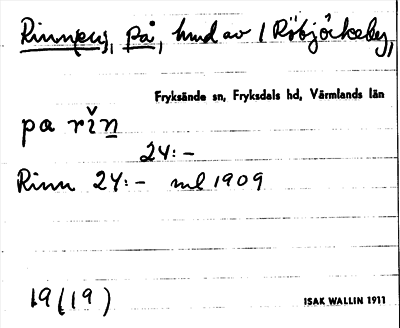 Rinnen, på, hmd av / Röbjörkeby,
Fryksände sn, Fryksdals hd, Värmlands län
pa rǐn
24:-
Rinn 24:- ml 1909
19(19)
ISAK WALLIN 1911